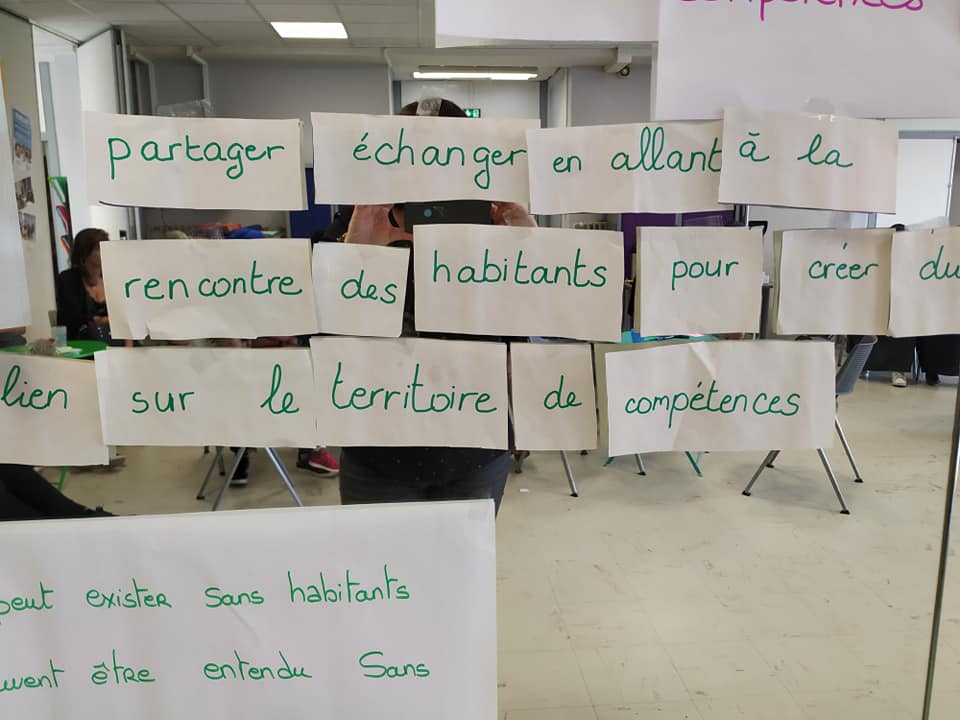 compétences
partager échanger en allant à la
rencontre des habitants pour créer du
lien sur le territoire de compétences
peut exister sans habitants
être entendu Sans